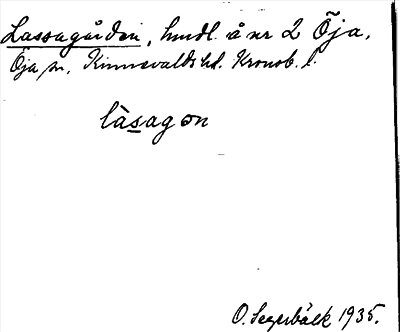 Lassagården, hmdl. å nr 2 Öja,
Öja sn, Kinnevalds hd. Kronob. l.
làsagon
O. Segerbäck 1935.